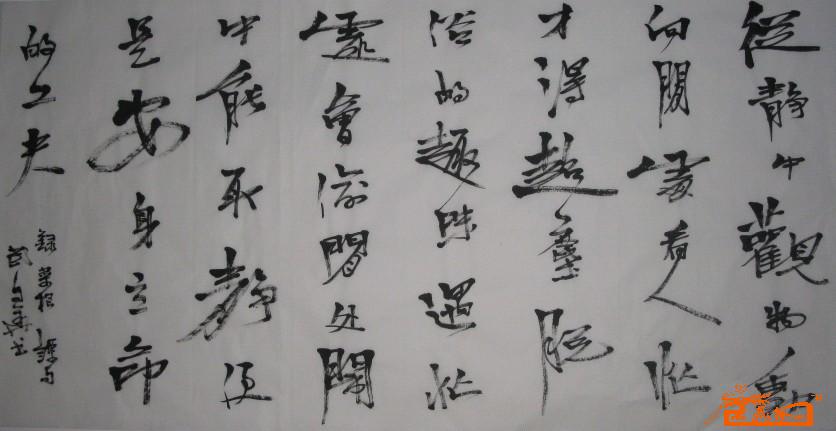 從静中觀物動
向閒處看人忙
才得超塵脱
俗的趣味遇忙
處會偷閒处鬧
中能取静便
是安身立命
的工夫
録菜根譚句